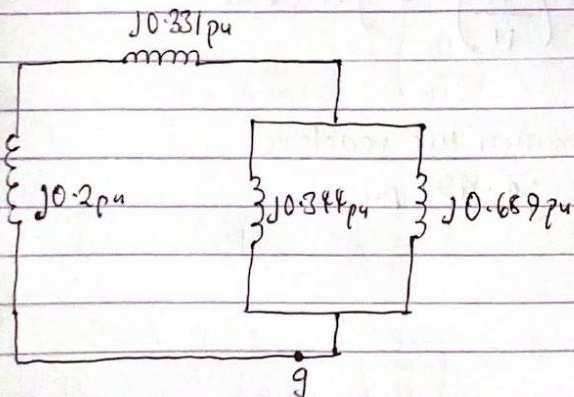 j0.331pu
j0.2pu
j0.344pu
j0.689pu
g